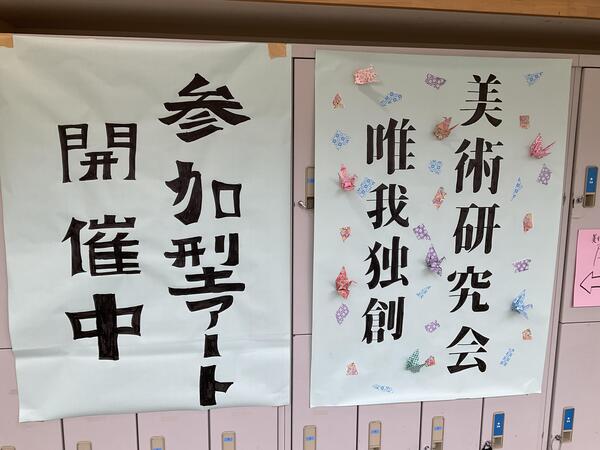 参加型アート
開催中
美術研究会
唯我独創